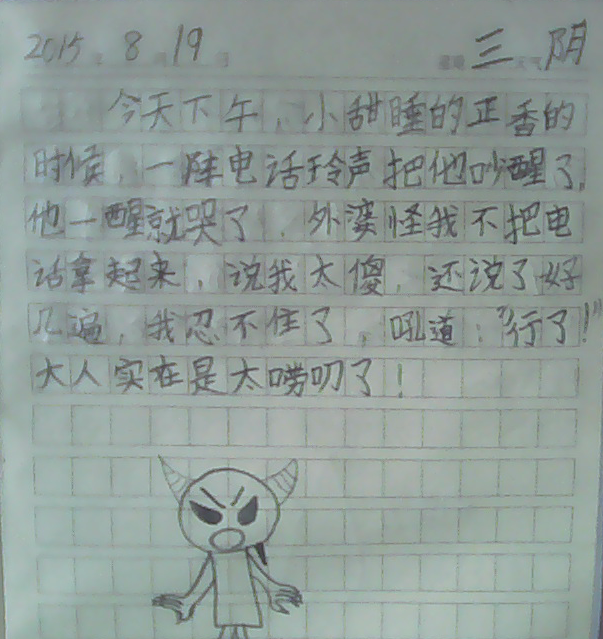 2015 8 19 三 阴
今天下午，小甜睡的正香的
时候，一阵电话玲声把他吵醒了，
他一醒就哭了，外婆怪我不把电
话拿起来，说我太傻，还说了好
几遍，我忍不住了，吼道：“行了！”
大人实在是太唠叨了！